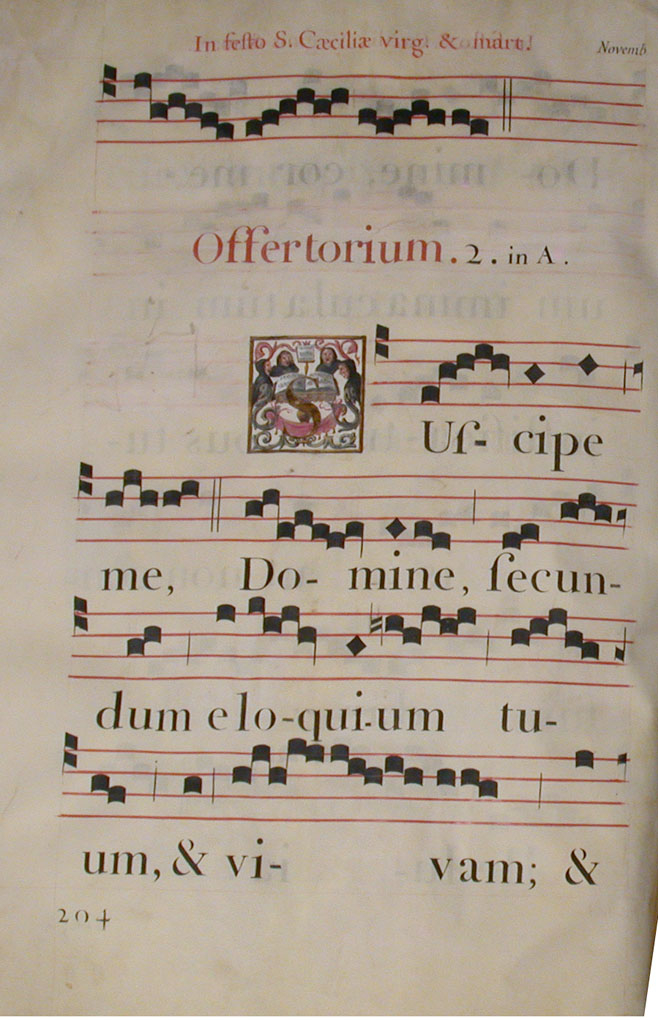 In feſto S. Cæciliæ virg. & mart.
Novemb
Offertorium. 2. in A.
SUſ- cipe
me, Do- mine, ſecun-
dum elo-qui-um tu-
um, & vi- vam; &
204